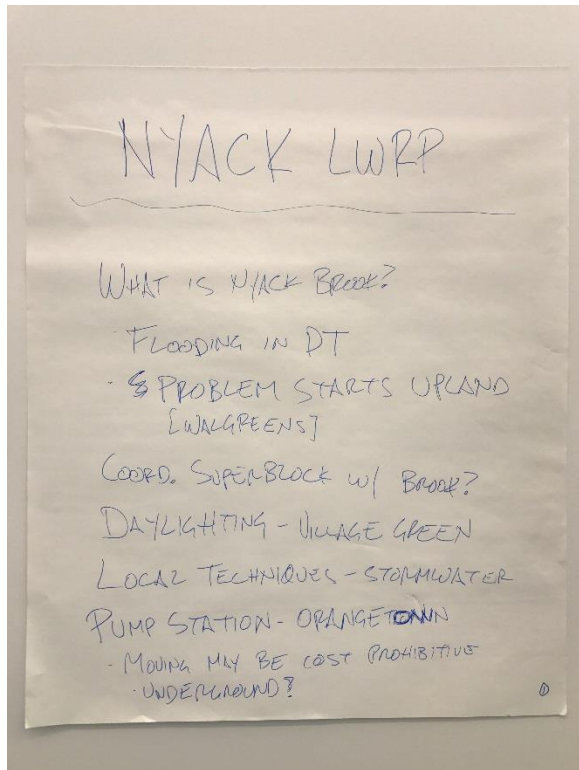 NYACK LWRP
WHAT IS NYACK BROOK?
· FLOODING IN DT
· PROBLEM STARTS UPLAND
[WALGREENS]
COORD. SUPERBLOCK W/ BROOK?
DAYLIGHTING - VILLAGE GREEN
LOCAL TECHNIQUES - STORMWATER
PUMP STATION - ORANGETOWN
· MOVING MAY BE COST PROHIBITIVE
· UNDERGROUND?
①